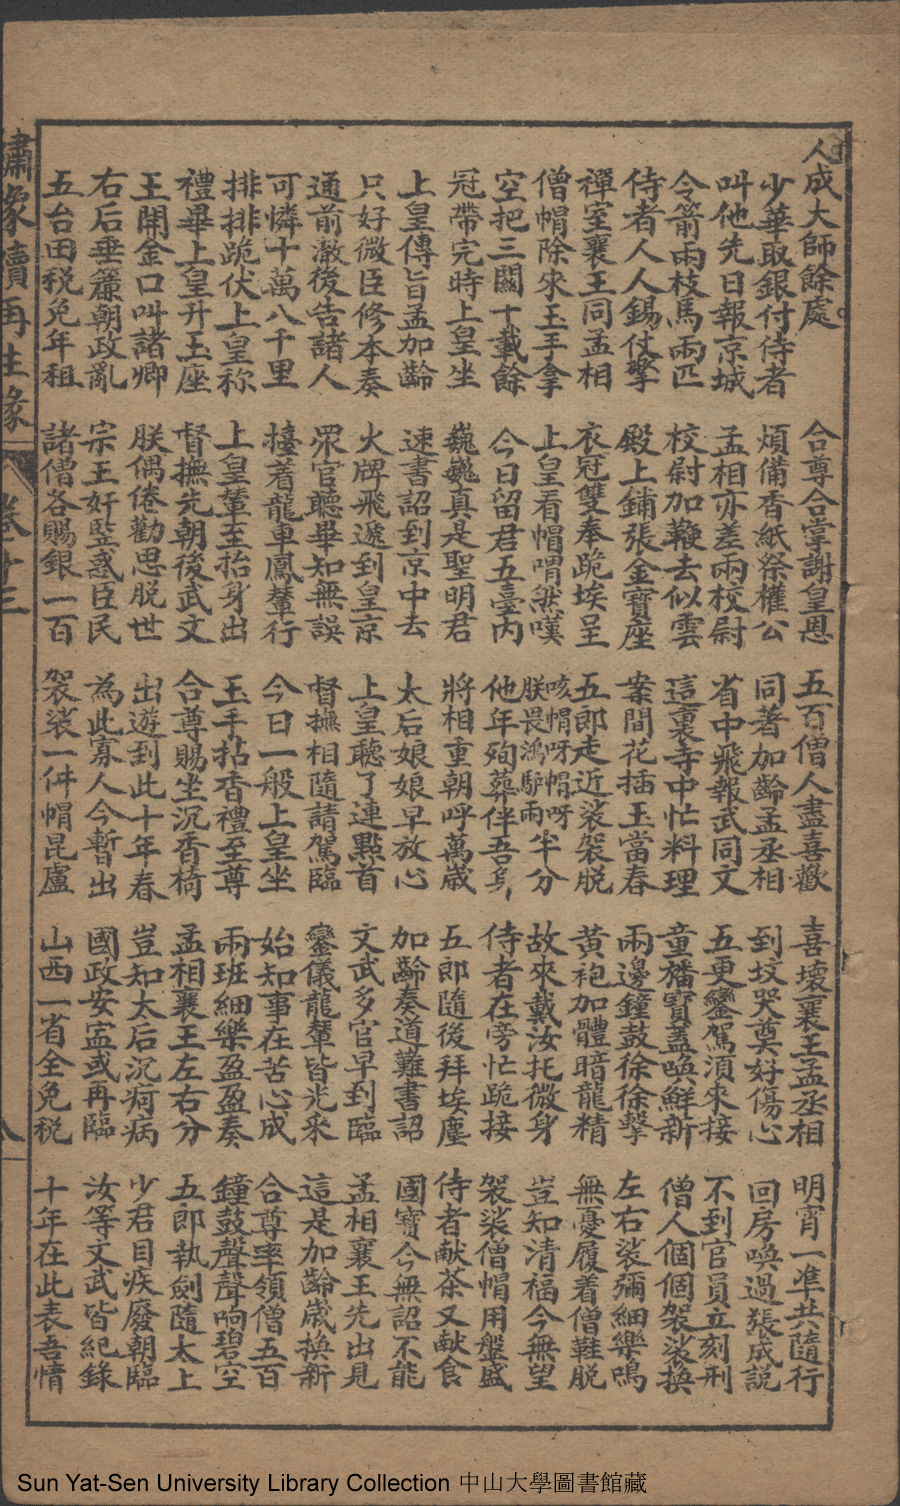 人成大師餘處　合尊合掌謝皇恩　五百僧人盡喜歡　喜壞襄王孟丞相　明宵一準共隨行
少華取銀付侍者　煩備香紙祭權公　同著加齡孟丞相　到坟哭奠好傷心　回房喚過張成説
叫他先日報京城　孟相亦差兩校尉　省中飛報武同文　五更鑾駕須來接　不到官員立刻刑
今箭兩枝馬兩匹　校尉加鞭去似雲　這裏寺中忙料理　童旛寶蓋喚鮮新　僧人個個袈裟換
侍者人人錫仗擎　殿上鋪張金寶座　案間花插玉當春　兩邊鐘鼓徐徐擊　左右裟彌細樂鳴
禪室襄王同孟相　衣冠雙奉跪埃呈　五郎走近裟袈脱　黄袍加體暗龍精　無憂履着僧鞋脱
僧帽除來玉手拿　上皇看帽喟然嘆　咳帽呀帽呀朕畏鴻馿兩半分　故來戴汝托微身　豈知清福今無望
空把三關十載餘　今日留君五臺内　他年殉葬伴吾身　侍者在旁忙跪接　袈裟僧帽用盤盛
冠帶完時上皇坐　巍巍真是聖明君　將相重朝呼萬歲　五郎隨後拜埃塵　侍者献茶又献食
上皇傳旨孟加齡　速書詔到京中去　太后娘娘早放心　加齡奏道難書詔　國寶今無詔不能
只好微臣修本奏　火牌飛遞到皇京　上皇聽了連點首　文武多官早到臨　孟相襄王先出見
通前澈後告諸人　眾官聽畢知無誤　督撫相隨請駕臨　鑾儀龍輦皆光采　這是加齡歲換新
可憐十萬八千里　擡着龍車鳳輦行　今日一般上皇坐　始知事在苦心成　合尊率領僧五百
排排跪伏上皇称　上皇輦至抬身出　玉手拈香禮至尊　兩班細樂盈盈奏　鐘鼓聲聲响碧空
禮畢上皇升玉座　督撫先朝後武文　合尊賜坐沉香椅　孟相襄王左右分　五郎執劍隨太上
王開金口叫諸卿　朕偶倦勤思脱世　出遊到此十年春　豈知太后沉疴病　少君目疾廢朝臨
右后垂簾朝政亂　宗王奸監惑臣民　為此寡人今暫出　國政安寍或再臨　汝等文武皆紀錄
五台田税免年租　諸僧各賜銀一百　袈裟一件帽昆盧　山西一省全免税　十年在此表吾情
繡像續再生緣　卷廿三
Sun Yat-Sen University Library Collection 中山大學圖書館藏